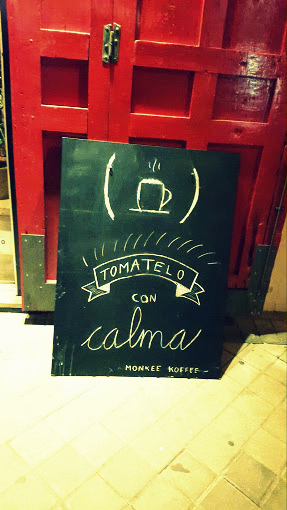 TOMATELO
CON
calma
MONKEE KOFFEE -